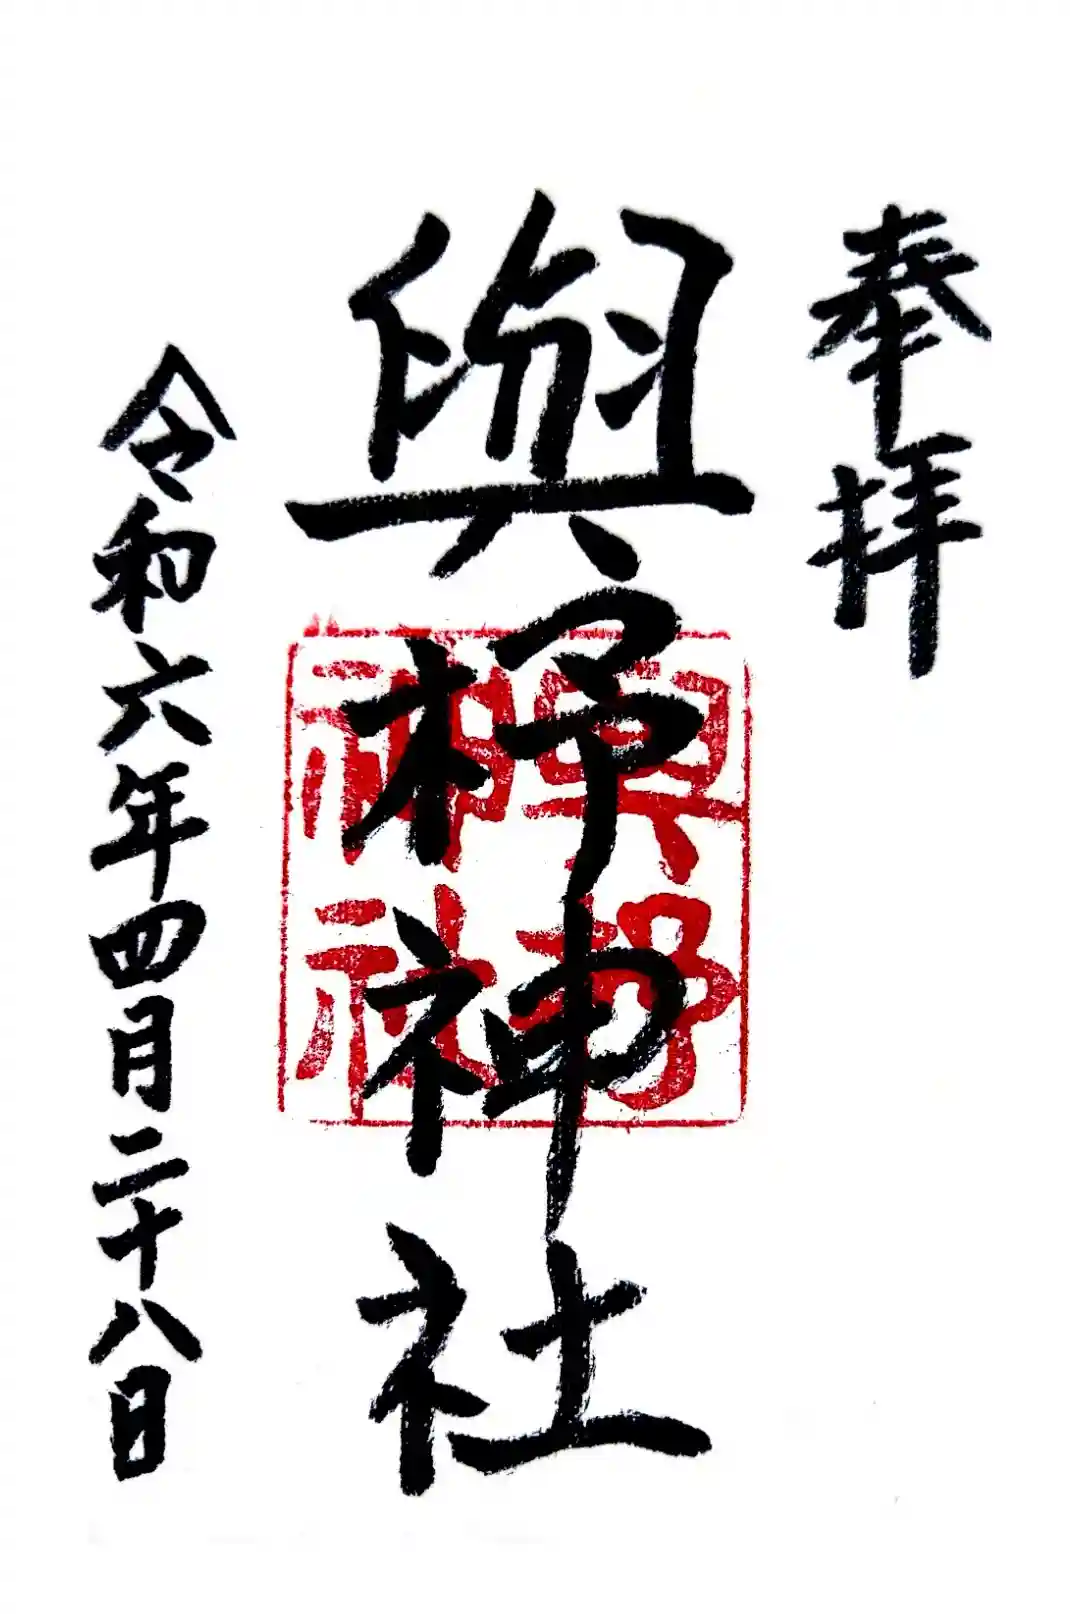 奉拝
與杼神社
與杼
神社
令和六年四月二十八日